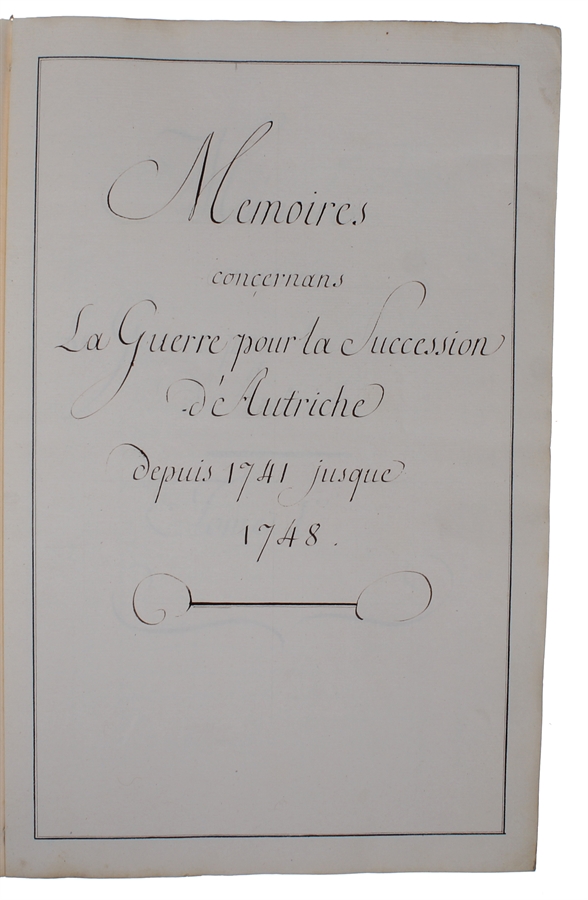 Memoires
conçernans
La Guerre pour la Succession
d'Autriche
depuis 1741 jusque
1748.